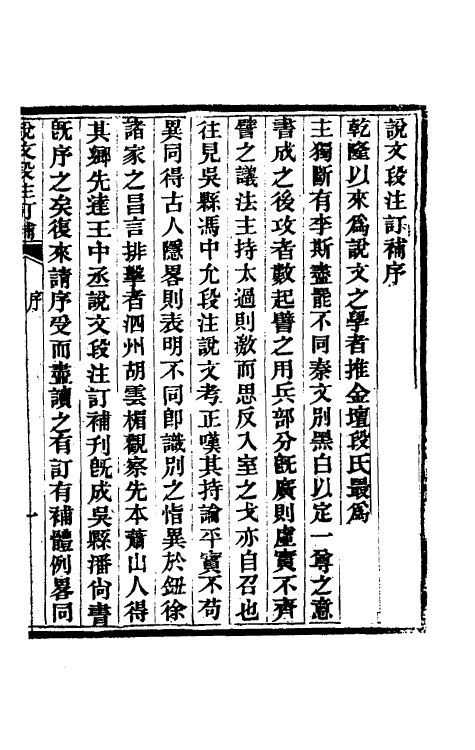 說文段注訂補序
乾隆以來爲說文之學者推金壇段氏最爲
主獨斷有李斯盡罷不同秦文別黑白以定一尊之意
書成之後攻者數起譬之用兵部分旣廣則虛實不齊
譬之議法主持太過則激而思反入室之戈亦自召也
往見吳縣馮中允段注說文考正嘆其持論平實不苟
異同得古人隱畧則表明不同卽識別之恉異於鈕徐
諸家之昌言排擊者泗州胡雲楣觀察先本蕭山人得
其鄉先達王中丞說文段注訂補刊旣成吳縣潘尙書
旣序之矣復來請序受而盡讀之有訂有補體例畧同
說文段注訂補
序
一